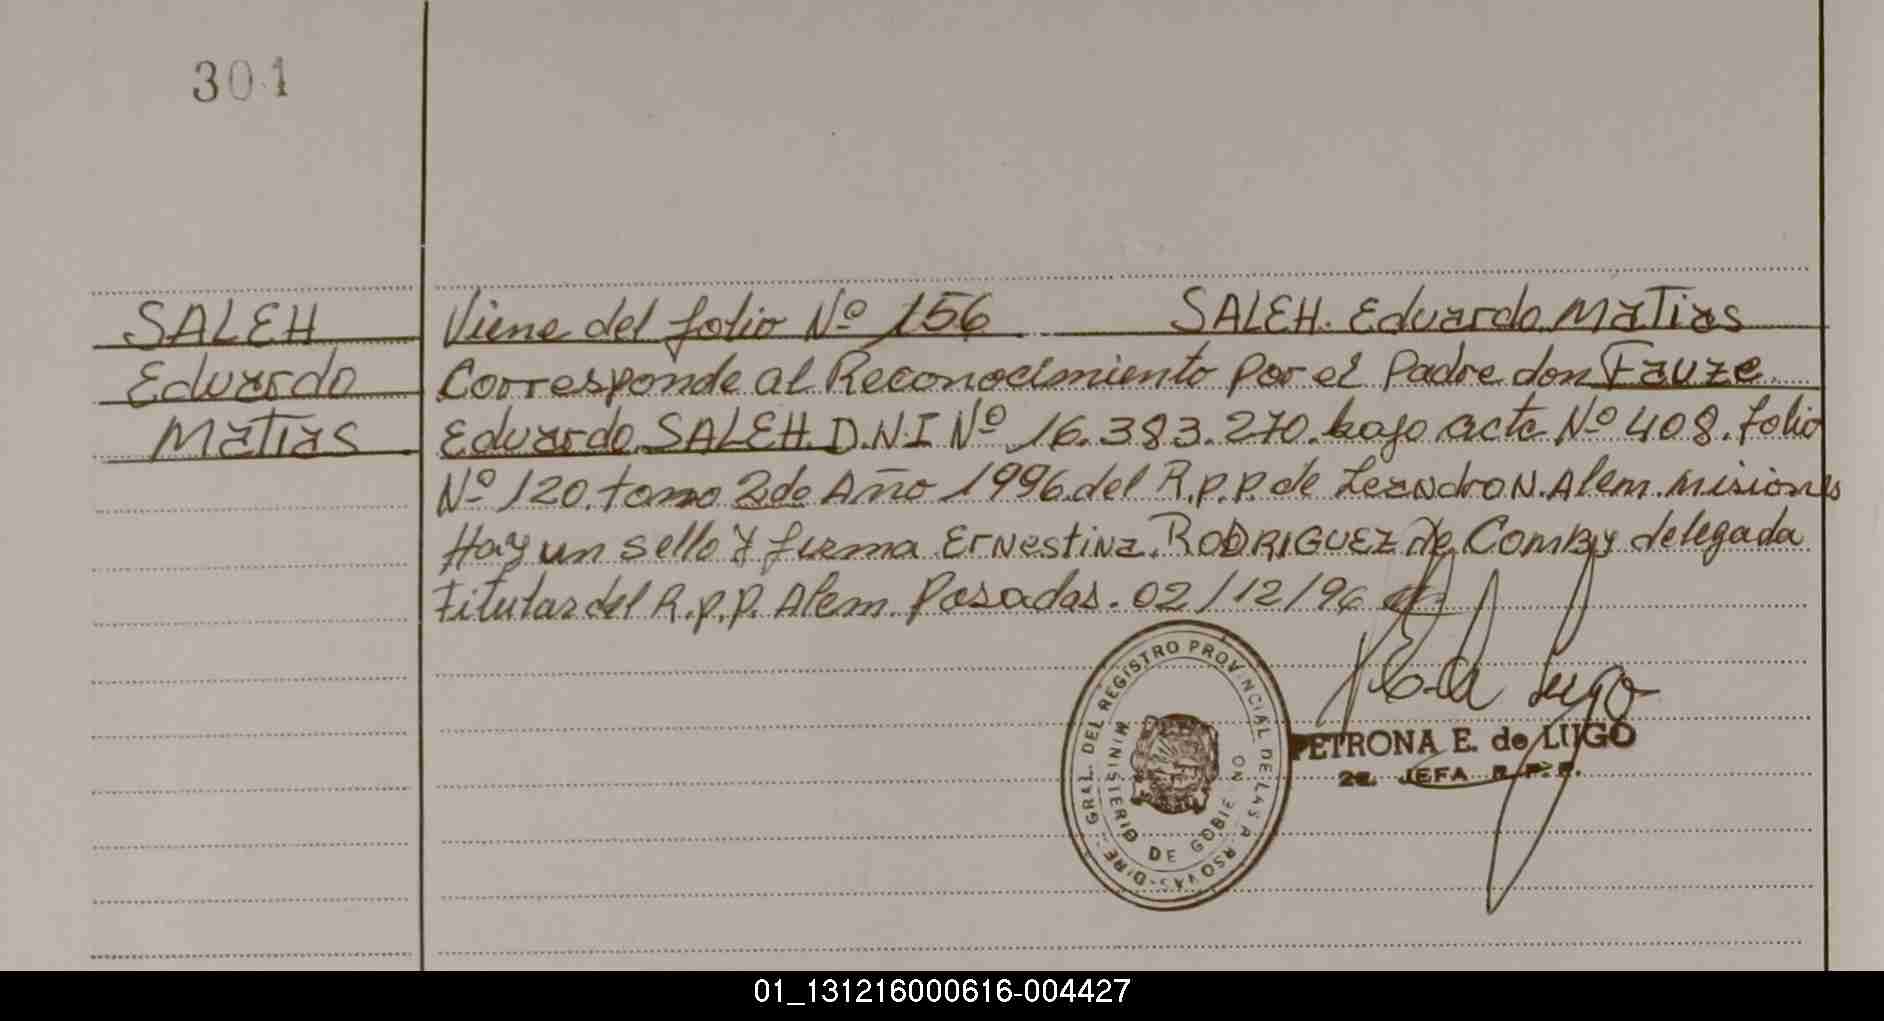 301
SALEH
Eduardo
Matias
Viene del folio Nº 156 SALEH. Eduardo Matias
Corresponde al Reconocimiento por el padre don Fauze
Eduardo SALEH. D.N.I Nº 16.383.270. bajo acta Nº 408. folio
Nº 120. tomo 2do Año 1996. del R.p.p. de Leandro N. Alem. Misiones
Hay un sello y firma Ernestina RODRIGUEZ de delegada
titular del R.p.p. Alem. Posadas. 02/12/96
Lugo
PETRONA E. de LUGO
2a. JEFA R.P.P.
GRAL. DEL REGISTRO PROVINCIAL DE LAS
MINISTERIO DE GOBIERNO
01_131216000616-004427